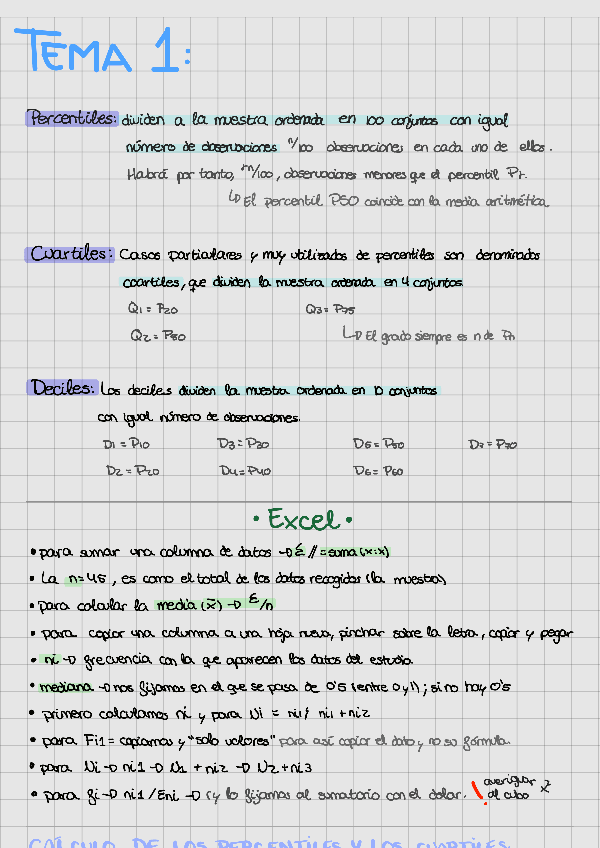 TEMA 1:
Percentiles: dividen a la muestra ordenada en 100 conjuntos con igual
número de observaciones n/100 observaciones en cada uno de ellos.
Habrá por tanto, rn/100, observaciones menores que el percentil Pr.
↳ El percentil P50 coincide con la media aritmética
Cuartiles: Casos particulares y muy utilizados de percentiles son denominados
cuartiles, que dividen la muestra ordenada en 4 conjuntos
Q1 = P20 Q3 = P75
Q2 = P50 ↳ El grado siempre es n de Pn
Deciles: Los deciles dividen la muestra ordenada en 10 conjuntos
con igual número de observaciones.
D1 = P10 D3 = P30 D5 = P50 D7 = P70
D2 = P20 D4 = P40 D6 = P60
• Excel •
• para sumar una columna de datos → Σ // = suma (x:x)
• La n=45, es como el total de los datos recogidos (la muestra)
• para calcular la media (x̄) → Σ/n
• para copiar una columna a una hoja nueva, pinchar sobre la letra, copiar y pegar
• ni → frecuencia con la que aparecen los datos del estudio
• mediana → nos fijamos en el que se pasa de 0'5 (entre 0 y 1); si no hay 0'5
• primero calculamos ni y para Ni = ni1/ ni1 + ni2
• para Fi1 = copiamos y "solo valores" para así copiar el dato y no su fórmula.
• para Ni → ni1 → N1 + ni2 → N2 + ni3
• para fi → ni1 / Σni → (y lo fijamos al sumatorio con el dolar. ! averiguar al cubo x²
CÁLCULO DE LOS PERCENTILES Y LOS CUARTILES